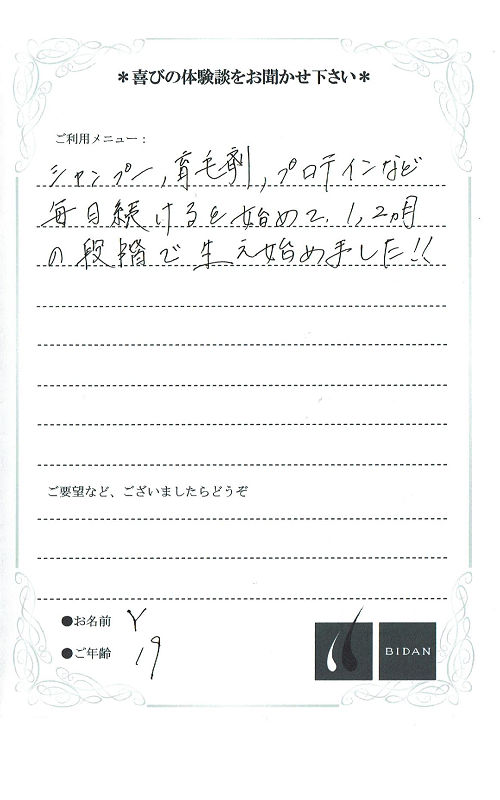 ＊喜びの体験談をお聞かせ下さい＊
ご利用メニュー：
シャンプー,育毛剤,プロテインなど
毎日続けると始めて、1,2ヵ月
の段階で生え始めました!!
ご要望など、ございましたらどうぞ
●お名前 Y
●ご年齢 19
BIDAN